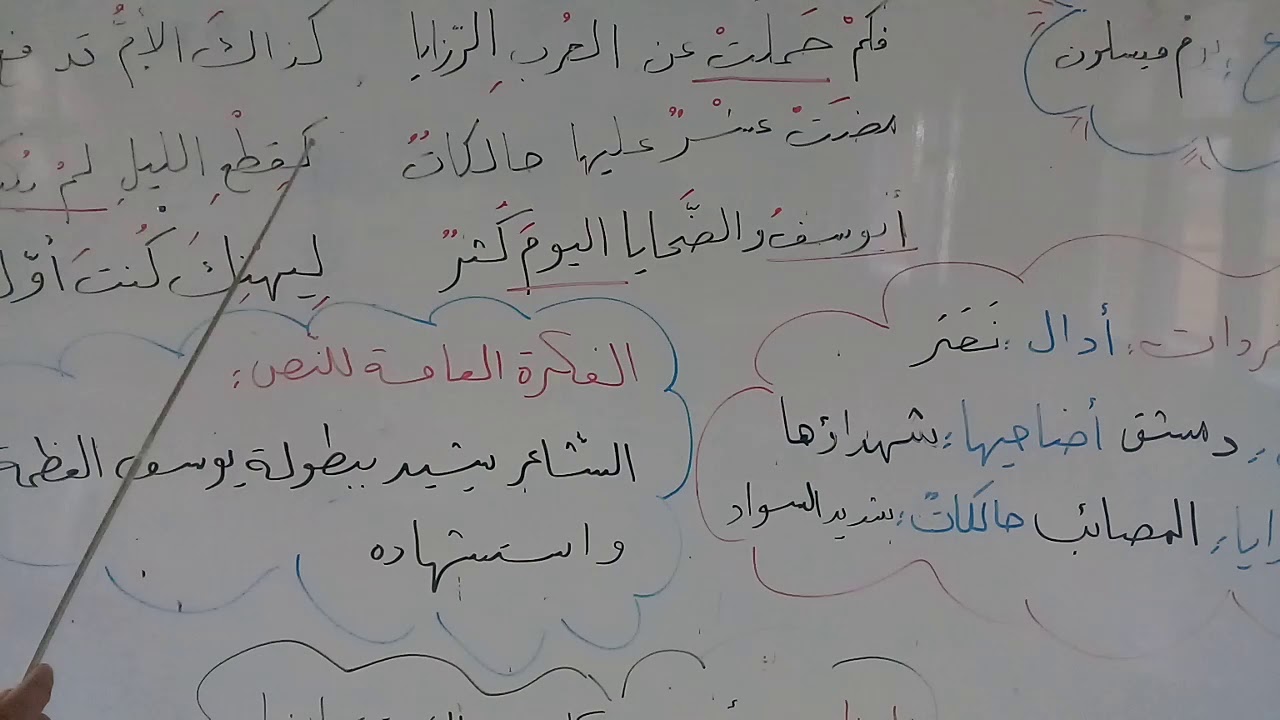 فكمْ حَملتْ عن العُربِ الرّزايا كذاكَ الأمُّ قد
مضَتْ عشْرٌ عليها حالكاتٌ كقِطْعِ الليلِ لمْ
أيوسفُ والضَّحايا اليومَ كُثرٌ لِيهنِكَ كُنتَ أوّل
يوم ميسلون
أدال: نَصَرَ
دمشق أضاحيها: شهداؤها
المصائب حالكاتٌ: شديد السواد
الفكرة العامة للنّص:
الشّاعر يشيد ببطولة يوسف العظمة
واستشهاده